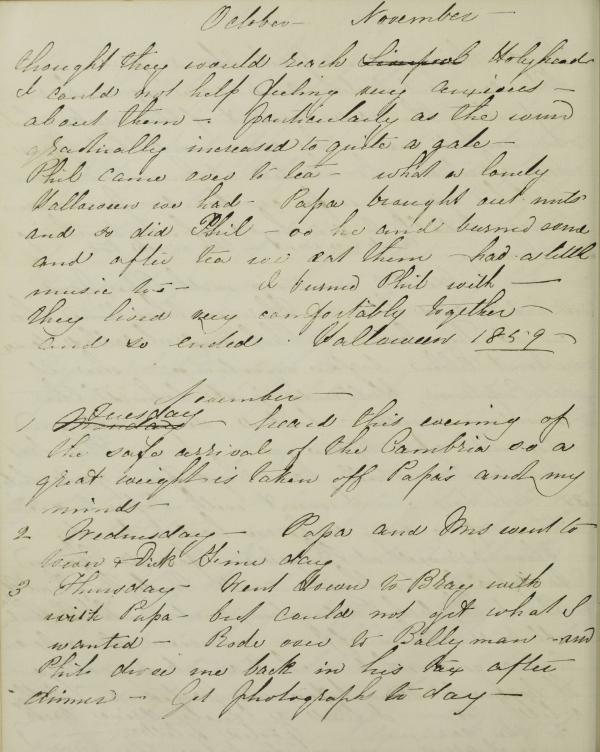 October - November -
thought they would reach Liverpool Holyhead
I could not help feeling very anxious -
about them - particularly as the wind
gradually increased to quite a gale -
Phil came over to tea - what a lonely
Halloween we had - Papa brought out nuts
and so did Phil - so he and burned some
and after tea we eat them - had a little
music too - I burned Phil with -
they lived very comfortably together -
and so ended . Halloween 1859 -
November -
1 Monday Tuesday - heard this evening of
the safe arrival of the Cambria so a
great weight is taken off Papa's and my
minds -
2 Wednesday - Papa and Mrs went to
town + Dick day
3 Thursday - Went down to Bray with
with Papa - but could not get what I
wanted - Rode over to Ballyman - and
Phil drove me back in his tax after
dinner - Got photograph to day -